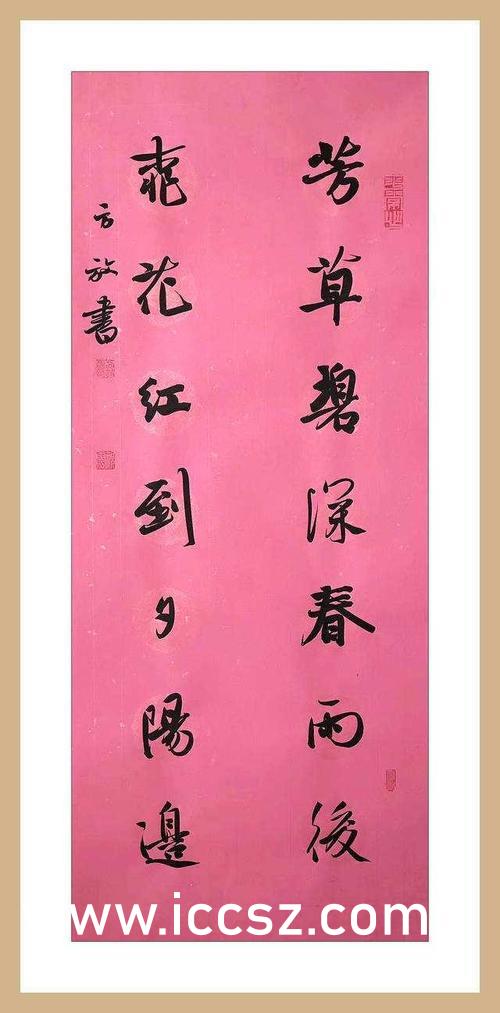 芳草碧深春雨後
飛花紅到夕陽邊
方放書
ww.iccsz.com